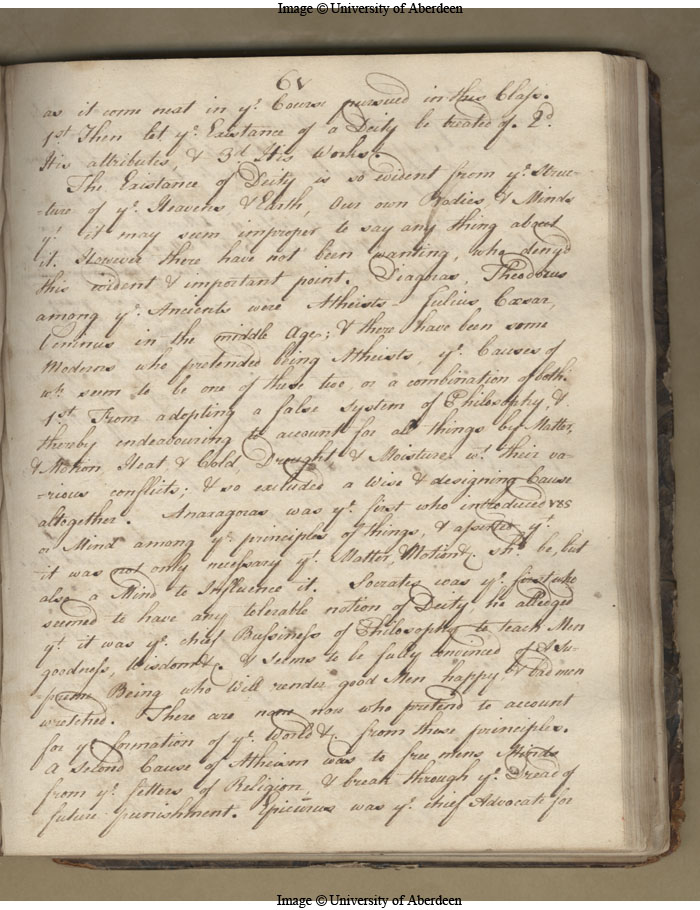 Image © University of Aberdeen
6v
as it come next in yᵉ. Course pursued in this Class.
1st Then let yᵉ. Existance of a Deity be treated of. 2d.
His attributes, & 3d His Works.
The Existance of Deity is so evident from yᵉ. Struc-
-ture of yᵉ. Heavens & Earth, Our own Bodies & Minds
yᵗ. it may seem improper to say any thing about
it. However there have not been wanting, who denyd
this evident & important point. Diagoras, Theodorus
among yᵉ. Ancients were Atheists - Julius Cæsar,
in the middle Age; & there have been some
Moderns who pretended being Atheists, yᵉ. Causes of
wʰ. seem to be one of these two, or a combination of both.
1st. From adopting a false System of Philosophy, &
thereby endeavouring to account for all things by Matter,
& Motion Heat & Cold Drought & Moisture wᵗ. their va-
-rious conflicts; & so excluded a Wise & designing Cause
altogether. Anaxagoras was yᵉ. first who introduced νȣς
or Mind among yᵉ. principles of things, & asserted yᵗ.
it was not only necessary yᵗ. Matter, Motion &c. shᵈ. be, but
also a Mind to Influence it. Socrates was yᵉ. first who
seemed to have any tolerable notion of Deity he alledged
yᵗ. it was yᵉ. chief Bussiness of Philosophy to teach Men
goodness, Wisdom &c. & seems to be fully convinced of A Su-
-preme Being who will render good Men happy & bad men
wretched. There are none now who pretend to account
for yᵉ. formation of yᵉ. World &c. from these principles.
A Second Cause of Atheism was to free mens Minds
from yᵉ. fetters of Religion, & break through yᵉ. Dread of
future punishment. Epicurus was yᵉ. chief Advocate for
Image © University of Aberdeen